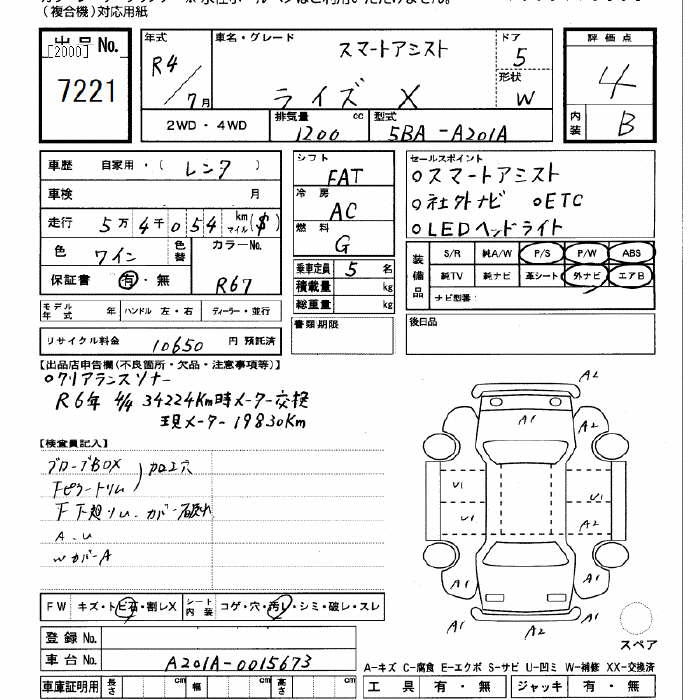 (複合機)対応用紙
出品No.
[2000]
7221
年式
R4
7月
車名・グレード
スマートアシスト
ライズ X
ドア
5
形状
W
2WD・4WD
排気量 cc
1200
型式
5BA-A201A
評価点
4
内装
B
車歴 自家用・(レンタ)
車検 月
走行 5万4千054 km マイル($)
色 ワイン
色替
カラーNo.
R67
保証書 有・無
モデル年式 年
ハンドル 左・右
ディーラー・並行
リサイクル料金 10650 円 預託済
シフト
FAT
冷房
AC
燃料
G
乗車定員 5 名
積載量 kg
総重量 kg
書類期限
セールスポイント
○スマートアシスト
○社外ナビ ○ETC
○LEDヘッドライト
装備品
S/R 純A/W P/S P/W ABS
純TV 純ナビ 革シート 外ナビ エアB
ナビ型番:
後日品
【出品店申告欄(不良箇所・欠品・注意事項等)】
○クリアランスソナー
R6年 4/4 34224Km時メーター交換
現メーター19830Km
【検査員記入】
グローブBOX
加工穴
F ピラートリム
A.U
Wカバー A
FW キズ・トビ石・割レX
シート内装 コゲ・穴・汚レ・シミ・破レ・スレ
登録No.
車台No. A201A-0015673
車庫証明用 長さ cm 幅 cm 高さ cm
A2
A1
A2
U1
U1
U1
A2
A1
A1
A1
A2
スペア
A-キズ C-腐食 E-エクボ S-サビ U-凹ミ W-補修 XX-交換済
工具 有・無 ジャッキ 有・無